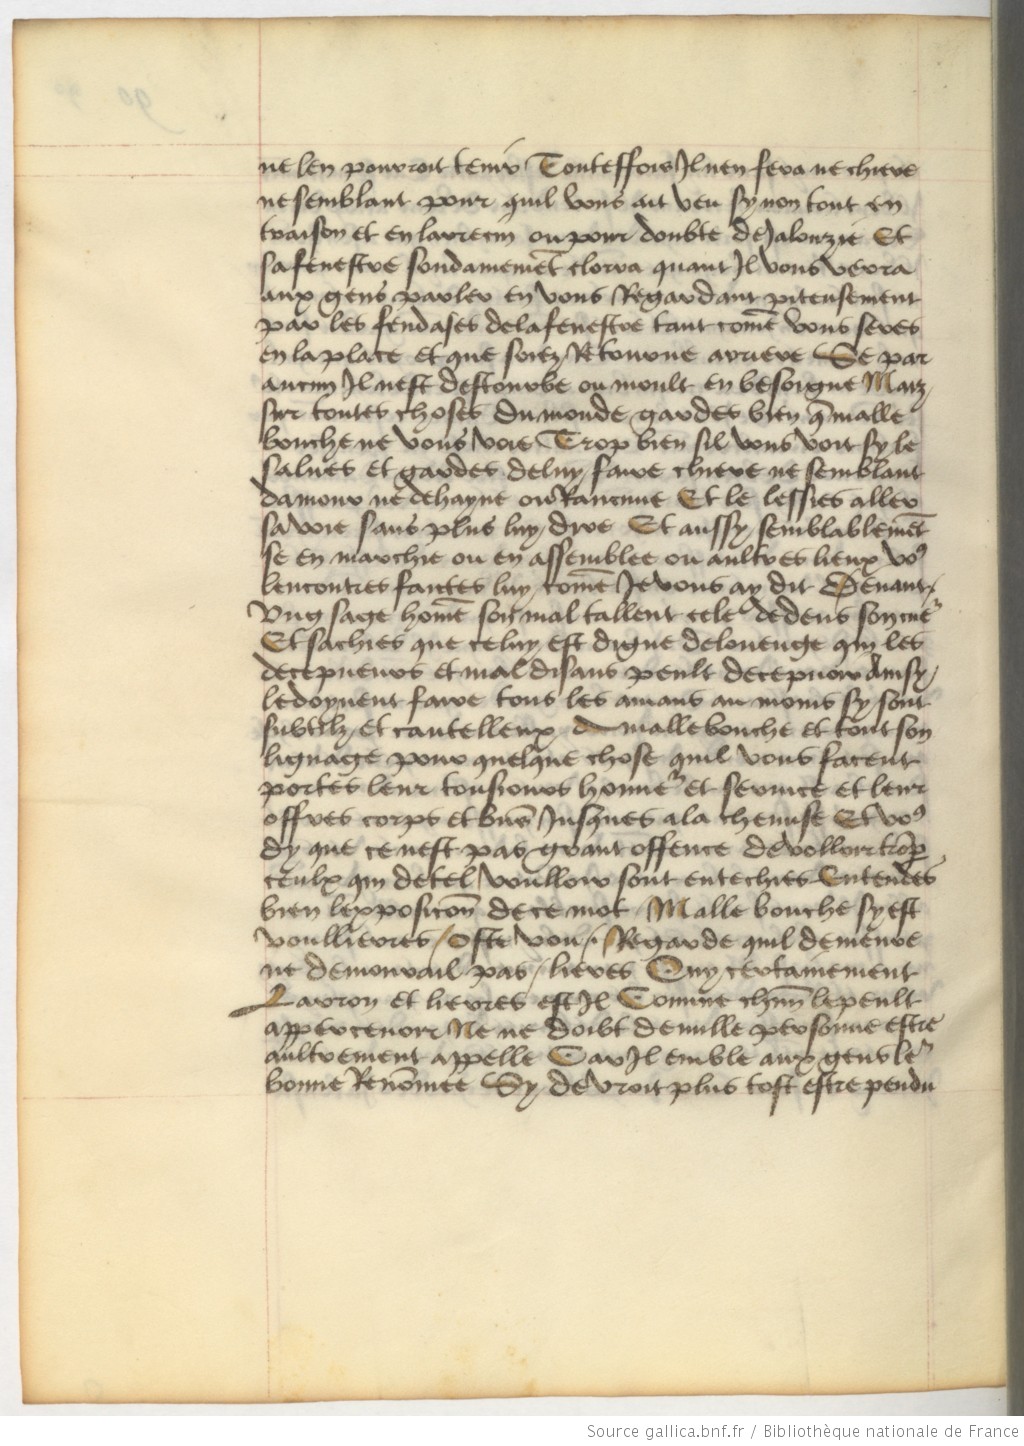 ne len pourroit tenir Toutteffois Il nen fera ne chiere
ne semblant pour quil vous ait veu sy non tout en
traison et en larrecin ou pour doubte de Jalouzie Et
sa fenestre soudainemēt clorra quant Il vous verra
aux gens parler en vous Regardant piteusement
par les fendases de la fenestre tant comē vous seres
en la place et que soiez Retourne arriere Se par
aucun Il nest destourbe ou moult en besoigne Maiz
sur toutes choses du monde gardes bien q̄ malle
bouche ne vous voie Trop bien sil vous voit sy le
salues et gardes de luy faire chiere ne semblant
damour ne de hayne ou Rancune Et le lessies aller
sa voie sans plus luy dire Et aussy semblablemēt
se en marchie ou en assemblee ou aultres lieux vo9
lencontres faictes luy comē Je vous ay dit devant
Ung sage homē son mal tallent cele dedens son cue2
Et sachies que celuy est digne de louenge qui les
decepueurs et mal disans peult decepuoir Ainsy
le doyuent faire tous les amans au moins sy sont
subtilz et cautelleux A malle bouche et tout son
lignage pour quelque chose quil vous facent
portes leur tousiours honne2 et seruice et leur
offres corps et biēs Jusques a la chemise Et vo9
dy que ce nest pas grant offence de volloir trōper
ceulx qui de tel voulloir sont entechies Entendes
bien lexposicōn de ce mot Malle bouche sy est
voullieures / oste vou / Regarde quil demeure
ne demourail pas / lieres Ouy certainement
Larron et lierres est Il Comme chūn le peult
appercevoir Ne ne doibt de nulle personne estre
aultrement appelle Car Il emble aux gens le2
bonne Renōmee Sy devroit plus tost estre pendu
Source gallica.bnf.fr / Bibliothèque nationale de France